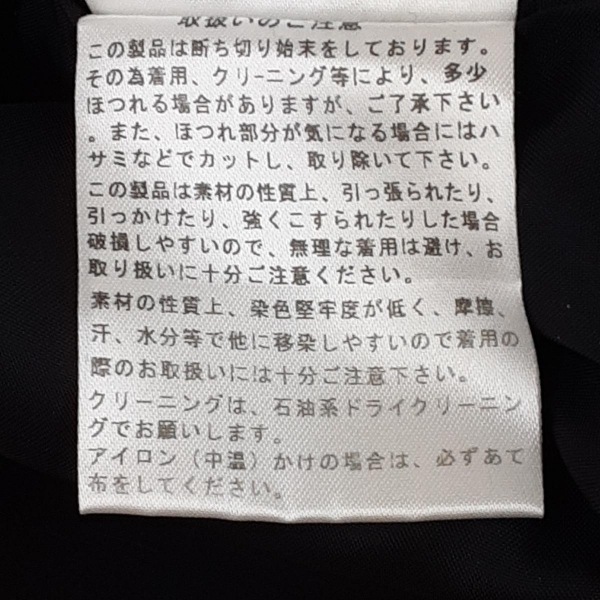 取扱いのご注意
この製品は断ち切り始末をしております。
その為着用、クリーニング等により、多少
ほつれる場合がありますが、ご了承下さい
。また、ほつれ部分が気になる場合にはハ
サミなどでカットし、取り除いて下さい。
この製品は素材の性質上、引っ張られたり、
引っかけたり、強くこすられたりした場合
破損しやすいので、無理な着用は避け、お
取り扱いに十分ご注意ください。
素材の性質上、染色堅牢度が低く、摩擦、
汗、水分等で他に移染しやすいので着用の
際のお取扱いには十分ご注意下さい。
クリーニングは、石油系ドライクリーニン
グでお願いします。
アイロン（中温）かけの場合は、必ずあて
布をしてください。